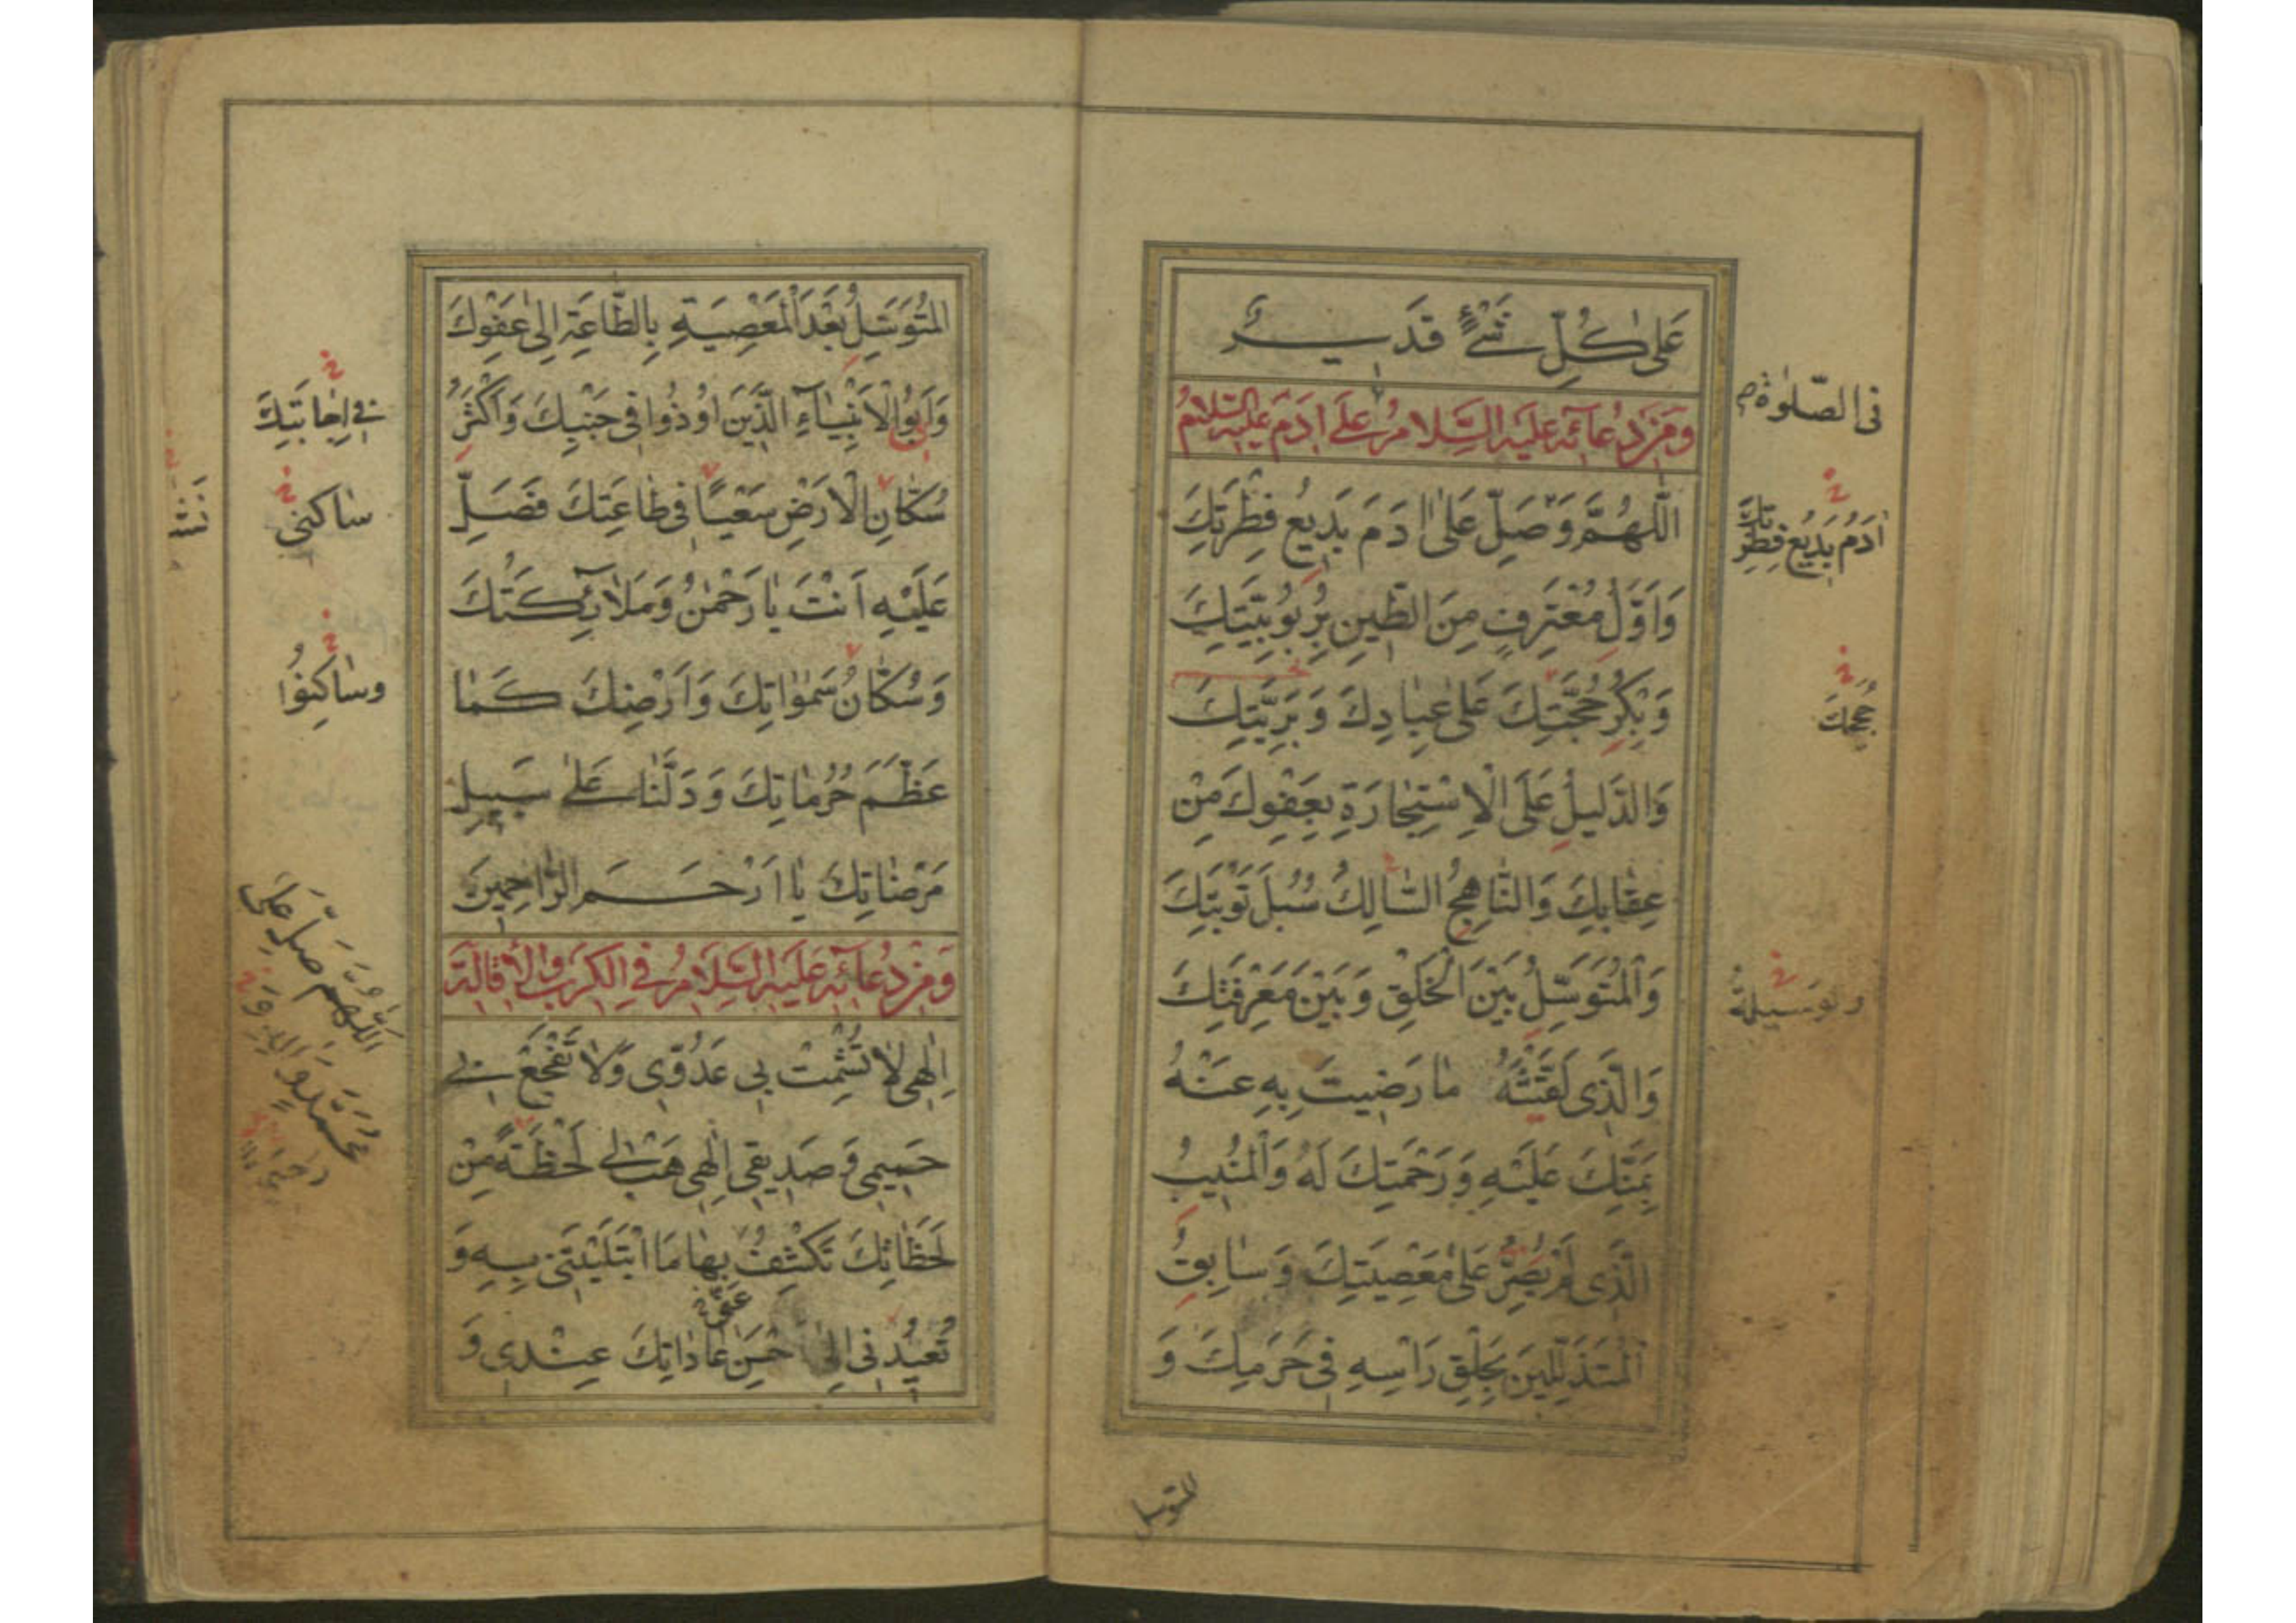 عَلىٰ كُلِّ شَيْءٍ قَدِيرٌ
وَمِنْ دُعائِهِ عَلَيْهِ السَّلامُ عَلىٰ آدَمَ عليه السلام
اَللّٰهُمَّ وَصَلِّ عَلىٰ اٰدَمَ بَدِيعِ فِطْرَتِكَ
وَاَوَّلِ مُعْتَرِفٍ مِنَ الطِّينِ بِرُبُوبِيَّتِكَ
وَبِكْرِ حُجَّتِكَ عَلىٰ عِبادِكَ وَبَرِيَّتِكَ
وَالدَّليلِ عَلَى الْاِسْتِجٰارَةِ بِعَفْوِكَ مِنْ
عِقٰابِكَ وَالنّٰاهِجُ السّٰالِكُ سُبُلَ تَوْبَتِكَ
وَالْمُتَوَسِّلُ بَيْنَ الْخَلْقِ وَبَيْنَ مَعْرِفَتِكَ
وَالَّذِى لَقَّنْتَهُ مٰا رَضِيتَ بِهِ عَنْهُ
بِمَنِّكَ عَلَيْهِ وَرَحْمَتِكَ لَهُ وَالْمُنِيبُ
الَّذِى لَمْ يُصِرَّ عَلىٰ مَعْصِيَتِكَ وَسٰابِقُ
الْمُتَذَلِّلِينَ بِحَلْقِ رَاْسِهِ فِى حَرَمِكَ وَ
المتوسل
فى الصّلوٰة
اٰدَمُ بَدِيعُ فِطْرَتِكَ
حُجَجِكَ
الْمُتَوَسِّلُ بَعْدَ الْمَعْصِيَةِ بِالطّٰاعَةِ اِلىٰ عَفْوِكَ
وَاَبُو الْاَنْبِيٰاءِ الَّذِينَ اُوذُوا فِى جَنْبِكَ وَاَكْثَرُ
سُكّٰانِ الْاَرْضِ سَعْيًا فِى طٰاعَتِكَ فَصَلِّ
عَلَيْهِ اَنْتَ يٰا رَحْمٰنُ وَمَلٰائِكَتُكَ
وَسُكّٰانُ سَمٰوٰاتِكَ وَاَرْضِكَ كَمٰا
عَظَّمَ حُرُمٰاتِكَ وَدَلَّنٰا عَلىٰ سَبِيلِ
مَرْضٰاتِكَ يٰا اَرْحَمَ الرّٰاحِمِينَ
وَمِنْ دُعٰائِهِ عَلَيْهِ السَّلَامُ فِي الْكَرْبِ وَالْاِقَالَةِ
اِلٰهِى لٰا تُشْمِتْ بِى عَدُوِّى وَلٰا تَفْجَعْ بِى
حَمِيمِى وَصَدِيقِى اِلٰهِى هَبْ لِى لَحْظَةً مِنْ
لَحَظٰاتِكَ تَكْشِفُ بِهٰا مَا ابْتَلَيْتَنِى بِهِ وَ
تُعِيدُنِى اِلىٰ حُسْنِ عٰادٰاتِكَ عِنْدِى وَ
عَنّى
فى اِجٰابَتِكَ
سٰاكنى
وسٰاكِنُوا
اَللّٰهُمَّ صَلِّ عَلىٰ
مُحَمَّدٍ وَاٰلِهِ وَ